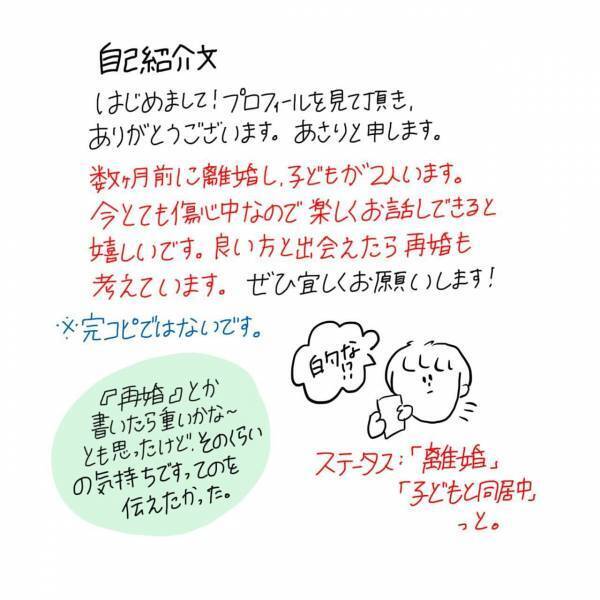 自己紹介文
はじめまして！プロフィールを見て頂き、
ありがとうございます。あさりと申します。
数ヶ月前に離婚し、子どもが2人います。
今とても傷心中なので楽しくお話しできると
嬉しいです。良い方と出会えたら再婚も
考えています。ぜひ宜しくお願いします！
※完コピではないです。
『再婚』とか
書いたら重いかな〜
とも思ったけど、そのくらい
の気持ちですってのを
伝えたかった。
的な!?
ステータス：「離婚」
「子どもと同居中」
っと。